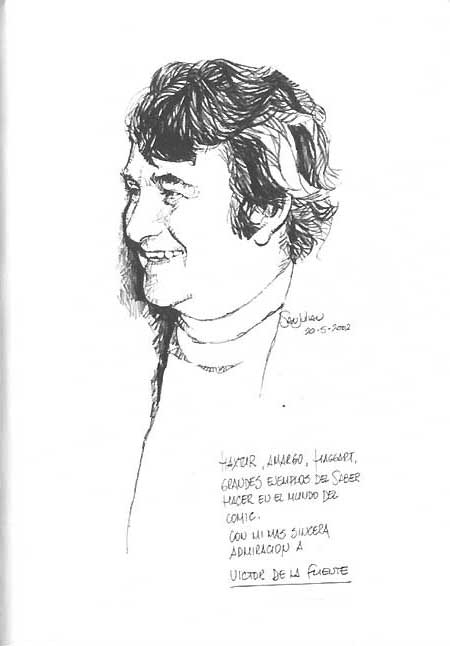 SANJULIAN
20-5-2002
HAXTUR, AMARGO, HAGGART,
GRANDES EJEMPLOS DEL SABER
HACER EN EL MUNDO DEL
COMIC.
CON MI MAS SINCERA
ADMIRACION A
VICTOR DE LA FUENTE